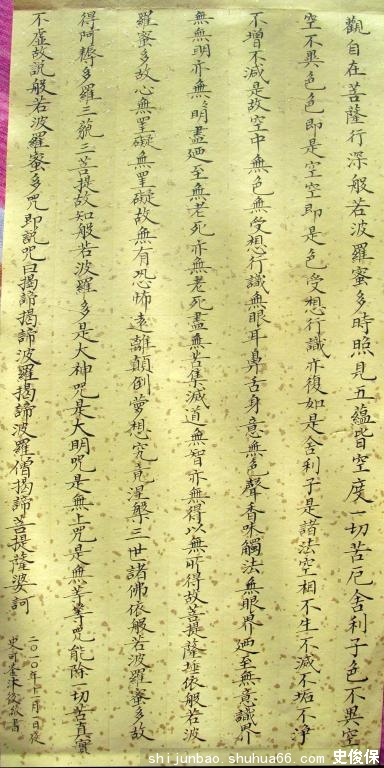 觀自在菩薩行深般若波羅蜜多時照見五蘊皆空度一切苦厄舍利子色不異空
空不異色色即是空空即是色受想行識亦復如是舍利子是諸法空相不生不滅不垢不淨
不增不減是故空中無色無受想行識無眼耳鼻舌身意無色聲香味觸法無眼界廼至無意識界
無無明亦無〻明盡廼至無老死亦無老死盡無苦集滅道無智亦無得以無所得故菩提薩埵依般若波
羅蜜多故心無罣礙無罣礙故無有恐怖遠離顛倒夢想究竟涅槃三世諸佛依般若波羅蜜多故
得阿耨多羅三藐三菩提故知般若波羅多是大神咒是大明咒是無上咒是無等等咒能除一切苦真實
不虛故說般若波羅蜜多咒即說咒曰揭諦揭諦波羅揭諦波羅僧揭諦菩提薩婆訶
二〇一〇年十二月一日
史
shijunbao.shuhua66.com 史俊保